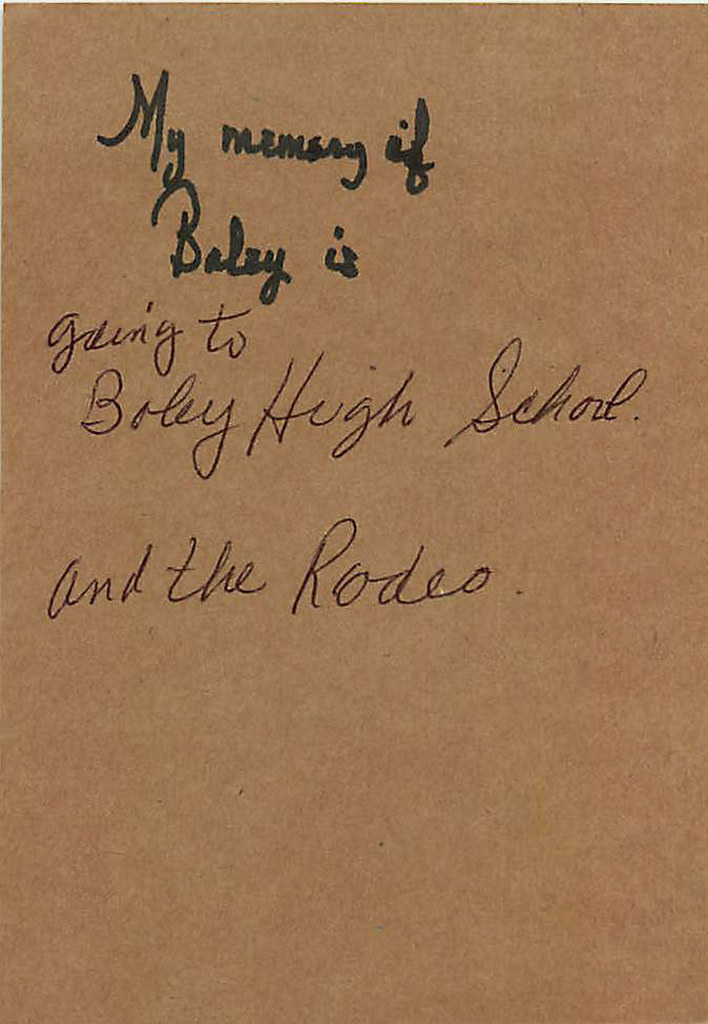 My memory of
Boley is
going to
Boley High School.
and the Rodeo.